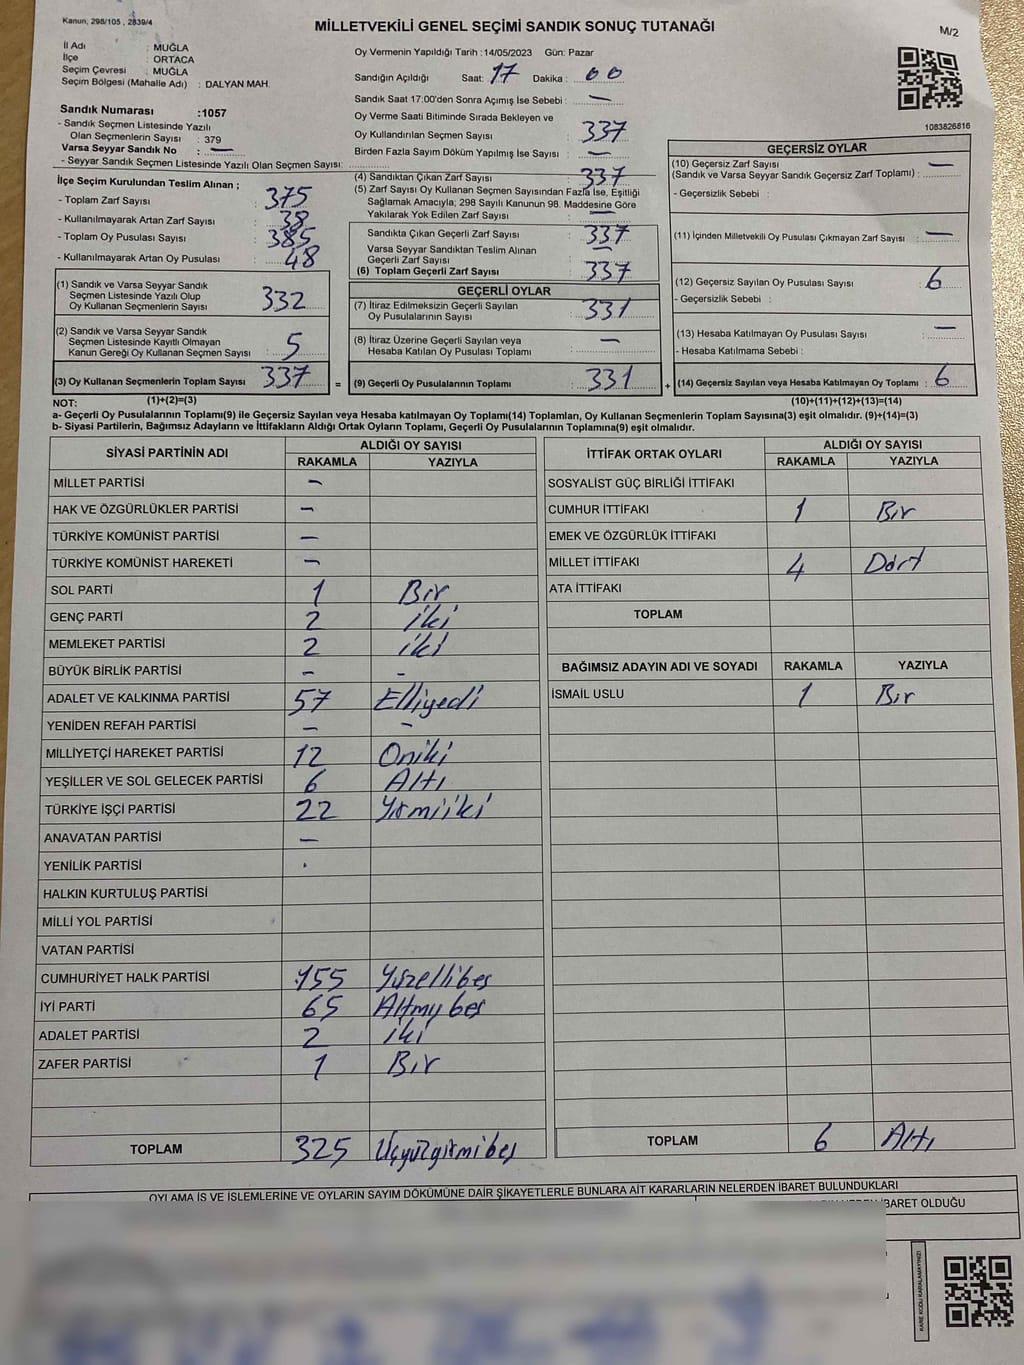 Kanun, 298/105 , 2839/4
MİLLETVEKİLİ GENEL SEÇİMİ SANDIK SONUÇ TUTANAĞI
M/2
İl Adı : MUĞLA
İlçe : ORTACA
Seçim Çevresi : MUĞLA
Seçim Bölgesi (Mahalle Adı) : DALYAN MAH.
Oy Vermenin Yapıldığı Tarih :14/05/2023 Gün: Pazar
Sandığın Açıldığı Saat: 17 Dakika : 00
Sandık Saat 17:00'den Sonra Açımış İse Sebebi : —
Oy Verme Saati Bitiminde Sırada Bekleyen ve
Oy Kullandırılan Seçmen Sayısı : 337
Birden Fazla Sayım Döküm Yapılmış İse Sayısı : —
1083826816
Sandık Numarası :1057
- Sandık Seçmen Listesinde Yazılı
Olan Seçmenlerin Sayısı : 379
Varsa Seyyar Sandık No : —
- Seyyar Sandık Seçmen Listesinde Yazılı Olan Seçmen Sayısı:
İlçe Seçim Kurulundan Teslim Alınan ;
- Toplam Zarf Sayısı : 375
- Kullanılmayarak Artan Zarf Sayısı : 38
- Toplam Oy Pusulası Sayısı : 385
- Kullanılmayarak Artan Oy Pusulası : 48
(1) Sandık ve Varsa Seyyar Sandık
Seçmen Listesinde Yazılı Olup
Oy Kullanan Seçmenlerin Sayısı : 332
(2) Sandık ve Varsa Seyyar Sandık
Seçmen Listesinde Kayıtlı Olmayan
Kanun Gereği Oy Kullanan Seçmen Sayısı : 5
(3) Oy Kullanan Seçmenlerin Toplam Sayısı : 337
(4) Sandıktan Çıkan Zarf Sayısı : 337
(5) Zarf Sayısı Oy Kullanan Seçmen Sayısından Fazla İse, Eşitliği
Sağlamak Amacıyla; 298 Sayılı Kanunun 98. Maddesine Göre
Yakılarak Yok Edilen Zarf Sayısı : —
Sandıkta Çıkan Geçerli Zarf Sayısı : 337
Varsa Seyyar Sandıktan Teslim Alınan
Geçerli Zarf Sayısı : —
(6) Toplam Geçerli Zarf Sayısı : 337
GEÇERLİ OYLAR
(7) İtiraz Edilmeksizin Geçerli Sayılan
Oy Pusulalarının Sayısı : 331
(8) İtiraz Üzerine Geçerli Sayılan veya
Hesaba Katılan Oy Pusulası Toplamı : —
= (9) Geçerli Oy Pusulalarının Toplamı : 331
GEÇERSİZ OYLAR
(10) Geçersiz Zarf Sayısı —
(Sandık ve Varsa Seyyar Sandık Geçersiz Zarf Toplamı) :
- Geçersizlik Sebebi :
(11) İçinden Milletvekili Oy Pusulası Çıkmayan Zarf Sayısı : —
(12) Geçersiz Sayılan Oy Pusulası Sayısı : 6
- Geçersizlik Sebebi :
(13) Hesaba Katılmayan Oy Pusulası Sayısı : —
- Hesaba Katılmama Sebebi :
+ (14) Geçersiz Sayılan veya Hesaba Katılmayan Oy Toplamı : 6
NOT: (1)+(2)=(3) (10)+(11)+(12)+(13)=(14)
a- Geçerli Oy Pusulalarının Toplamı(9) ile Geçersiz Sayılan veya Hesaba katılmayan Oy Toplamı(14) Toplamları, Oy Kullanan Seçmenlerin Toplam Sayısına(3) eşit olmalıdır. (9)+(14)=(3)
b- Siyasi Partilerin, Bağımsız Adayların ve İttifakların Aldığı Ortak Oyların Toplamı, Geçerli Oy Pusulalarının Toplamına(9) eşit olmalıdır.
SİYASİ PARTİNİN ADI ALDIĞI OY SAYISI
RAKAMLA YAZIYLA
MİLLET PARTİSİ —
HAK VE ÖZGÜRLÜKLER PARTİSİ —
TÜRKİYE KOMÜNİST PARTİSİ —
TÜRKİYE KOMÜNİST HAREKETİ —
SOL PARTİ 1 Bir
GENÇ PARTİ 2 iki
MEMLEKET PARTİSİ 2 iki
BÜYÜK BİRLİK PARTİSİ - -
ADALET VE KALKINMA PARTİSİ 57 Elliyedi
YENİDEN REFAH PARTİSİ — -
MİLLİYETÇİ HAREKET PARTİSİ 12 Oniki
YEŞİLLER VE SOL GELECEK PARTİSİ 6 Altı
TÜRKİYE İŞÇİ PARTİSİ 22 Yirmiiki
ANAVATAN PARTİSİ —
YENİLİK PARTİSİ .
HALKIN KURTULUŞ PARTİSİ
MİLLİ YOL PARTİSİ
VATAN PARTİSİ
CUMHURİYET HALK PARTİSİ 155 Yüzellibeş
İYİ PARTİ 65 Altmışbeş
ADALET PARTİSİ 2 iki
ZAFER PARTİSİ 1 Bir
TOPLAM 325 Üçyüzyirmibeş
İTTİFAK ORTAK OYLARI ALDIĞI OY SAYISI
RAKAMLA YAZIYLA
SOSYALİST GÜÇ BİRLİĞİ İTTİFAKI
CUMHUR İTTİFAKI 1 Bir
EMEK VE ÖZGÜRLÜK İTTİFAKI
MİLLET İTTİFAKI 4 Dört
ATA İTTİFAKI
TOPLAM
BAĞIMSIZ ADAYIN ADI VE SOYADI RAKAMLA YAZIYLA
İSMAİL USLU 1 Bir
TOPLAM 6 Altı
OYLAMA İŞ VE İŞLEMLERİNE VE OYLARIN SAYIM DÖKÜMÜNE DAİR ŞİKAYETLERLE BUNLARA AİT KARARLARIN NELERDEN İBARET BULUNDUKLARI
İBARET OLDUĞU
KARE KODU KARALAMAYINIZ!